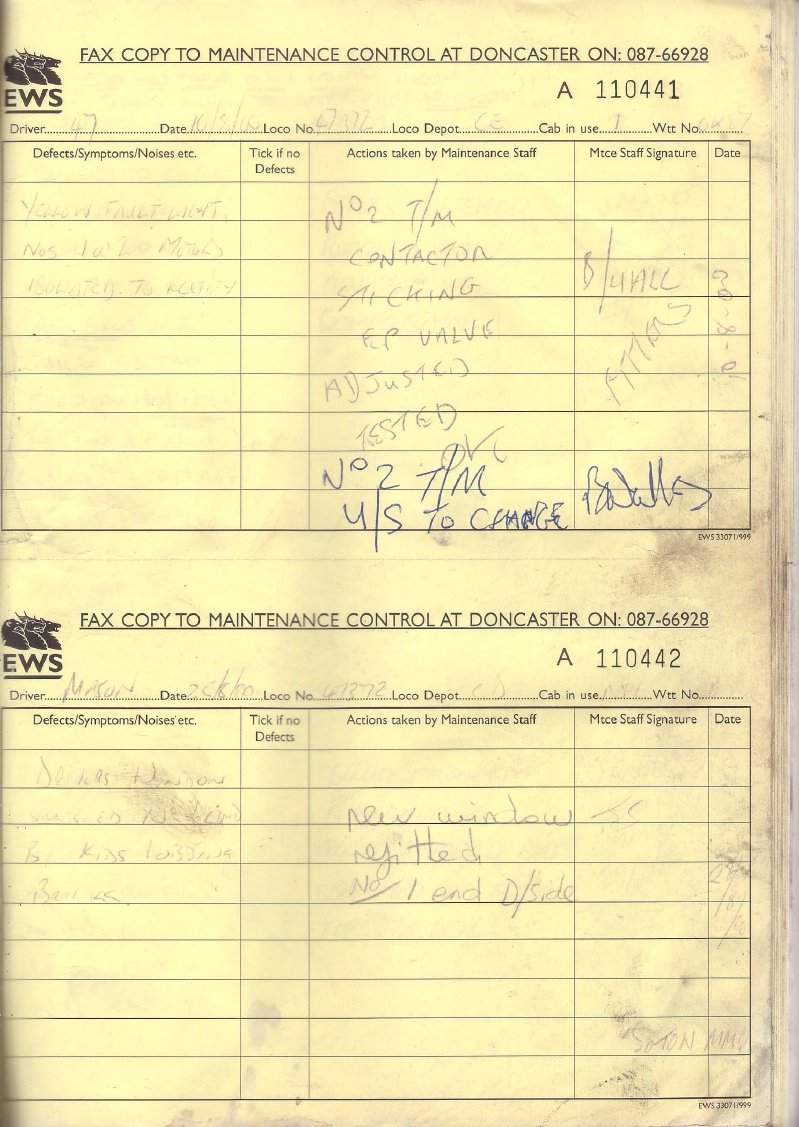 FAX COPY TO MAINTENANCE CONTROL AT DONCASTER ON: 087-66928
EWS
A 110441
Driver 47 Date 10/8/00 Loco No. 47372 Loco Depot CE Cab in use 1 Wtt No.
Defects/Symptoms/Noises etc. Tick if no Defects Actions taken by Maintenance Staff Mtce Staff Signature Date
YELLOW FAULT LIGHT, Nº 2 T/M
Nos 1 & 2 MOTORS CONTACTOR B/HALL
ISOLATED. TO RECTIFY STICKING FITTERS
EP VALVE
ADJUSTED
TESTED
Nº 2 T/M
U/S TO CHANGE
EWS 33071/999
FAX COPY TO MAINTENANCE CONTROL AT DONCASTER ON: 087-66928
EWS
A 110442
Driver MASON Date 25/8/00 Loco No. 47372 Loco Depot Cab in use Wtt No.
Defects/Symptoms/Noises etc. Tick if no Defects Actions taken by Maintenance Staff Mtce Staff Signature Date
Drivers window
new window
By KIDS refitted
Bricks No 1 end D/side
SOTON
EWS 33071/999